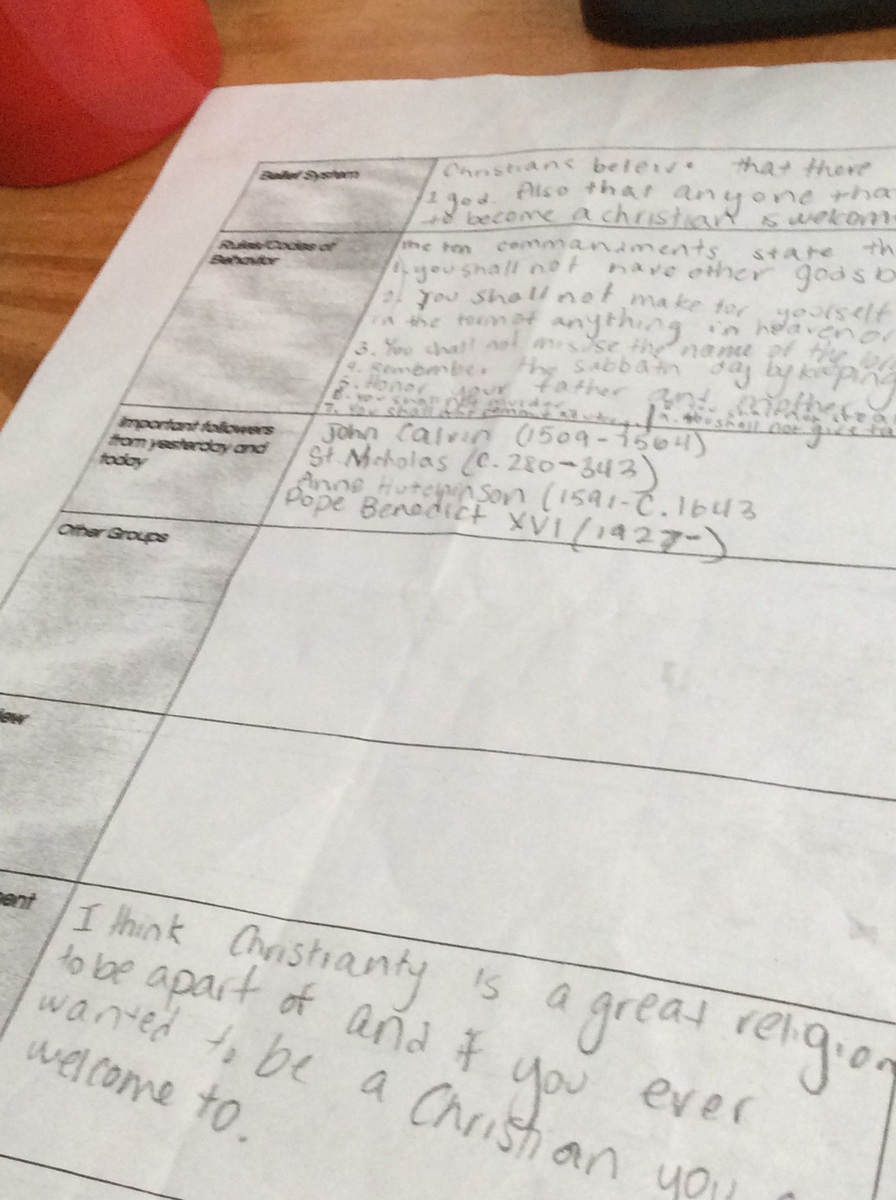 Belief System
Christians beleive that there
1 god. Also that anyone tha
to become a christian is welcom
Rules/Codes of
Behavior
the ten commandments state th
1. you shall not have other gods b
2. You shall not make for yourself
in the form of anything in heaven or
3. You shall not misuse the name of the
4. Remember the sabbath day by keeping
5. Honor your father and mother
6. You shall not murder
7. You shall not commit
shall not give
Important followers
from yesterday and
today
John Calvin (1509-1564)
St. Nicholas (C. 280-343)
Anne Hutchinson (1591-C. 1643
Pope Benedict XVI (1927-)
Other Groups
ew
ent
I think Christianty is a great religion
to be apart of and if you ever
wanted to be a Christian you
welcome to.